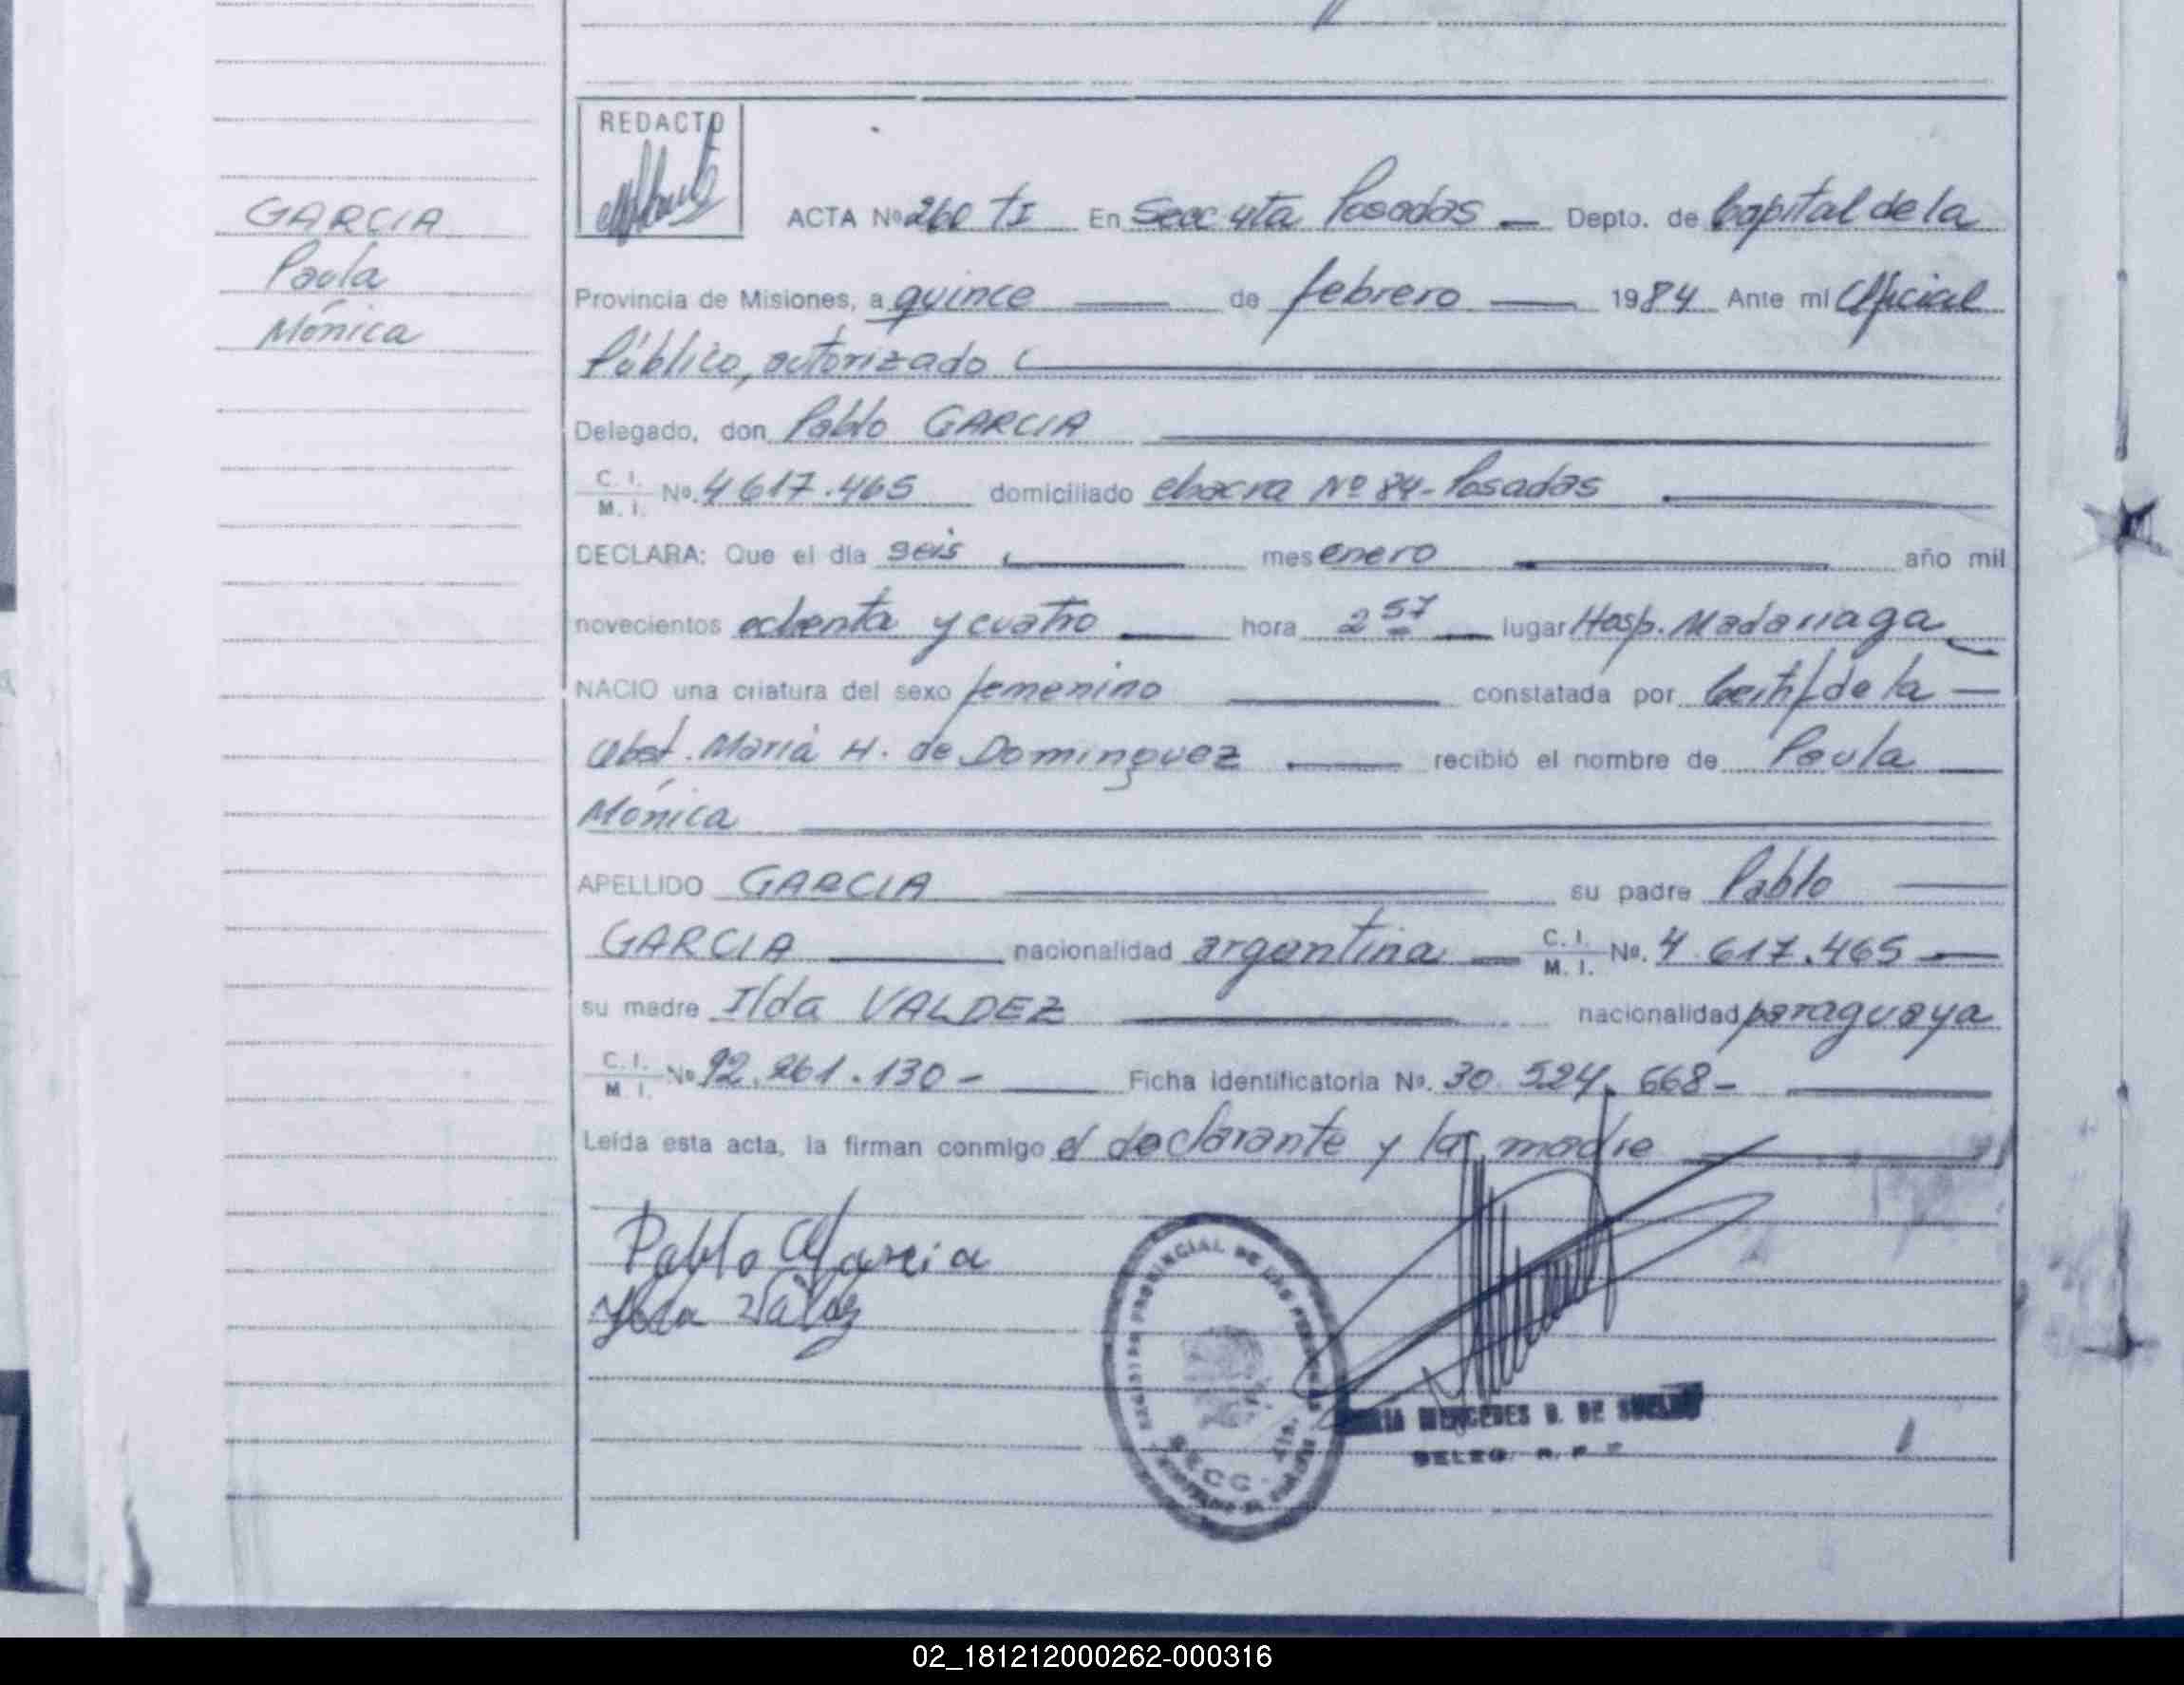 GARCIA
Paula
Mónica
REDACTO
ACTA Nº 260 TI En Secc 4ta Posadas Depto. de Capital de la
Provincia de Misiones, a quince de febrero 1984 Ante mi Oficial
Público, autorizado
Delegado, don Pablo GARCIA
C. I. M. I. Nº. 4617.465 domiciliado chacra Nº 84 - Posadas
DECLARA: Que el día seis mes enero año mil
novecientos ochenta y cuatro hora 2 57 lugar Hosp. Madariaga
NACIO una criatura del sexo femenino constatada por Certif de la
Obst. Maria H. de Dominguez recibió el nombre de Paula
Mónica
APELLIDO GARCIA su padre Pablo
GARCIA nacionalidad argentina C. I. M. I. Nº. 4 617.465
su madre Ilda VALDEZ nacionalidad paraguaya
C. I. M. I. Nº 92.261.130 - Ficha identificatoria Nº. 30 524. 668 -
Leída esta acta, la firman conmigo el declarante y la madre
Pablo Garcia
Ilda Valdez
REGISTRO PROVINCIAL DE LAS PERSONAS
SECC. 4ta.
MERCEDES DE
DELEG. R. P.
02_181212000262-000316